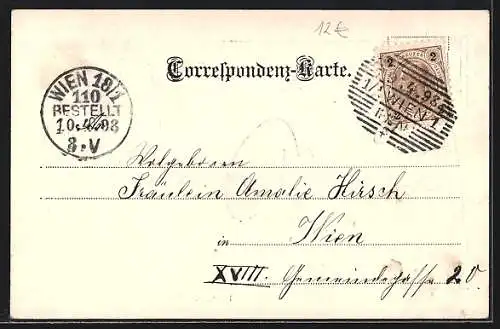 12€
Correspondenz-Karte.
2 2
WIEN 18/1
110
BESTELLT
10.4.98
8.V
1/1 WIEN 1
Wolgeboren
Fräulein Amalie Hirsch
in Wien
XVIII. Gemeindegasse 20